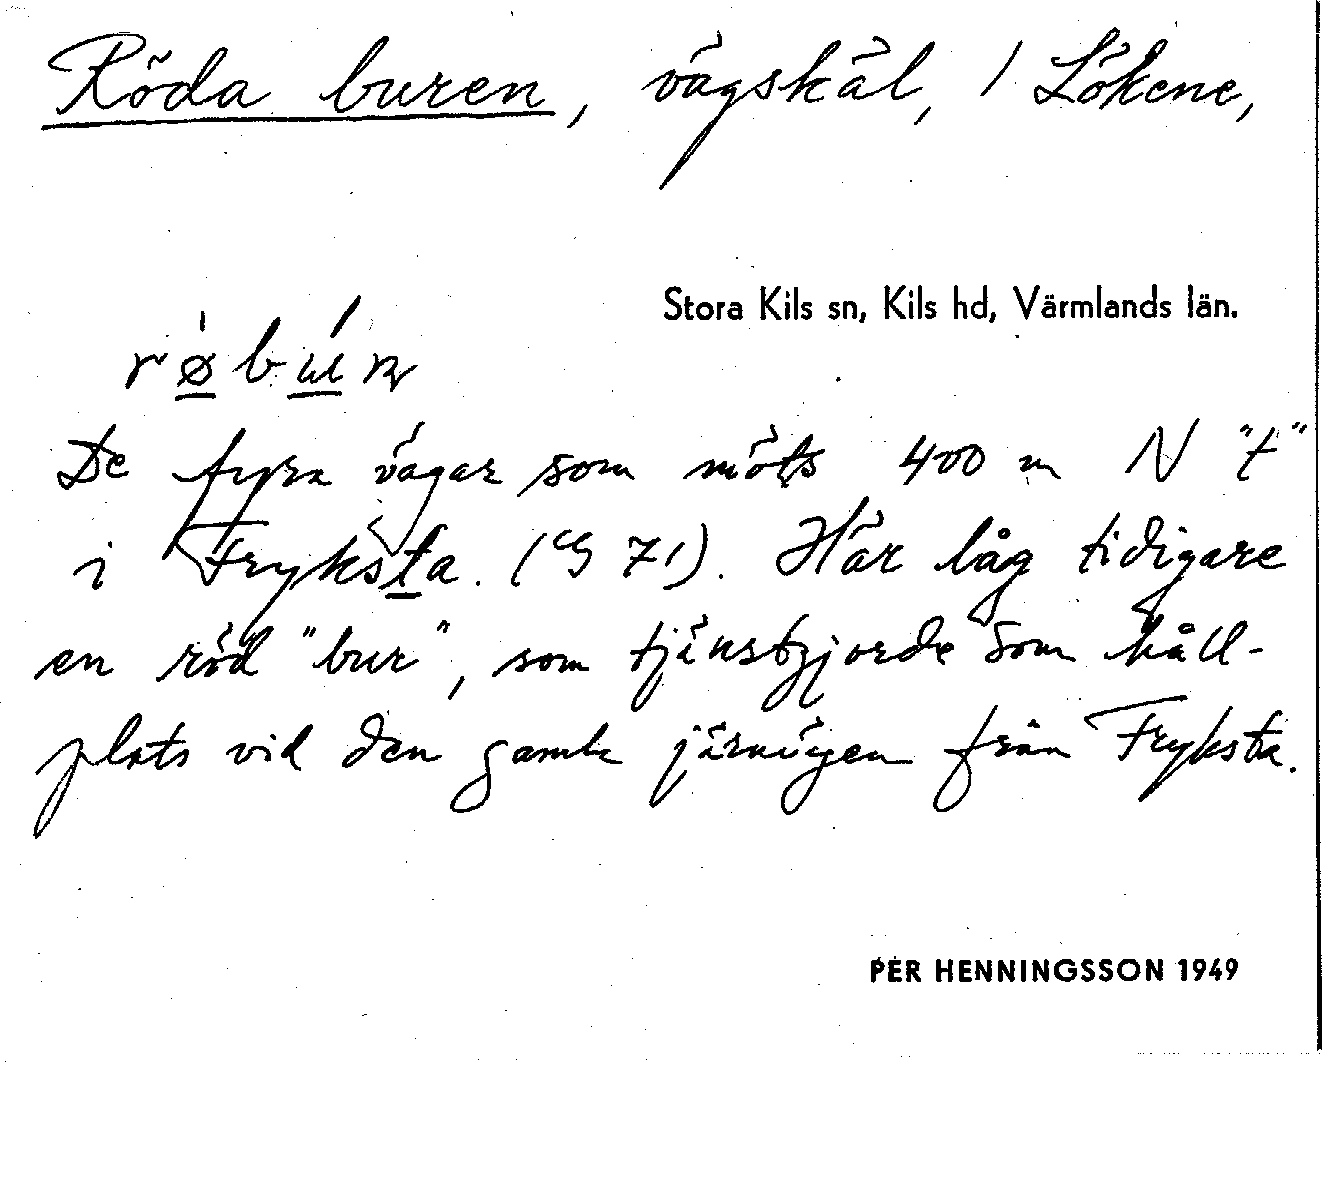 Röda buren, vägskäl, / Lökene,
Stora Kils sn, Kils hd, Värmlands län.
De fyra vägar som möts 400 m N "t"
i Fryksta. (EG 71). Här låg tidigare
en röd "bur", som tjänstgjorde som håll-
plats vid den gamla järnvägen från Fryksta.
PER HENNINGSSON 1949